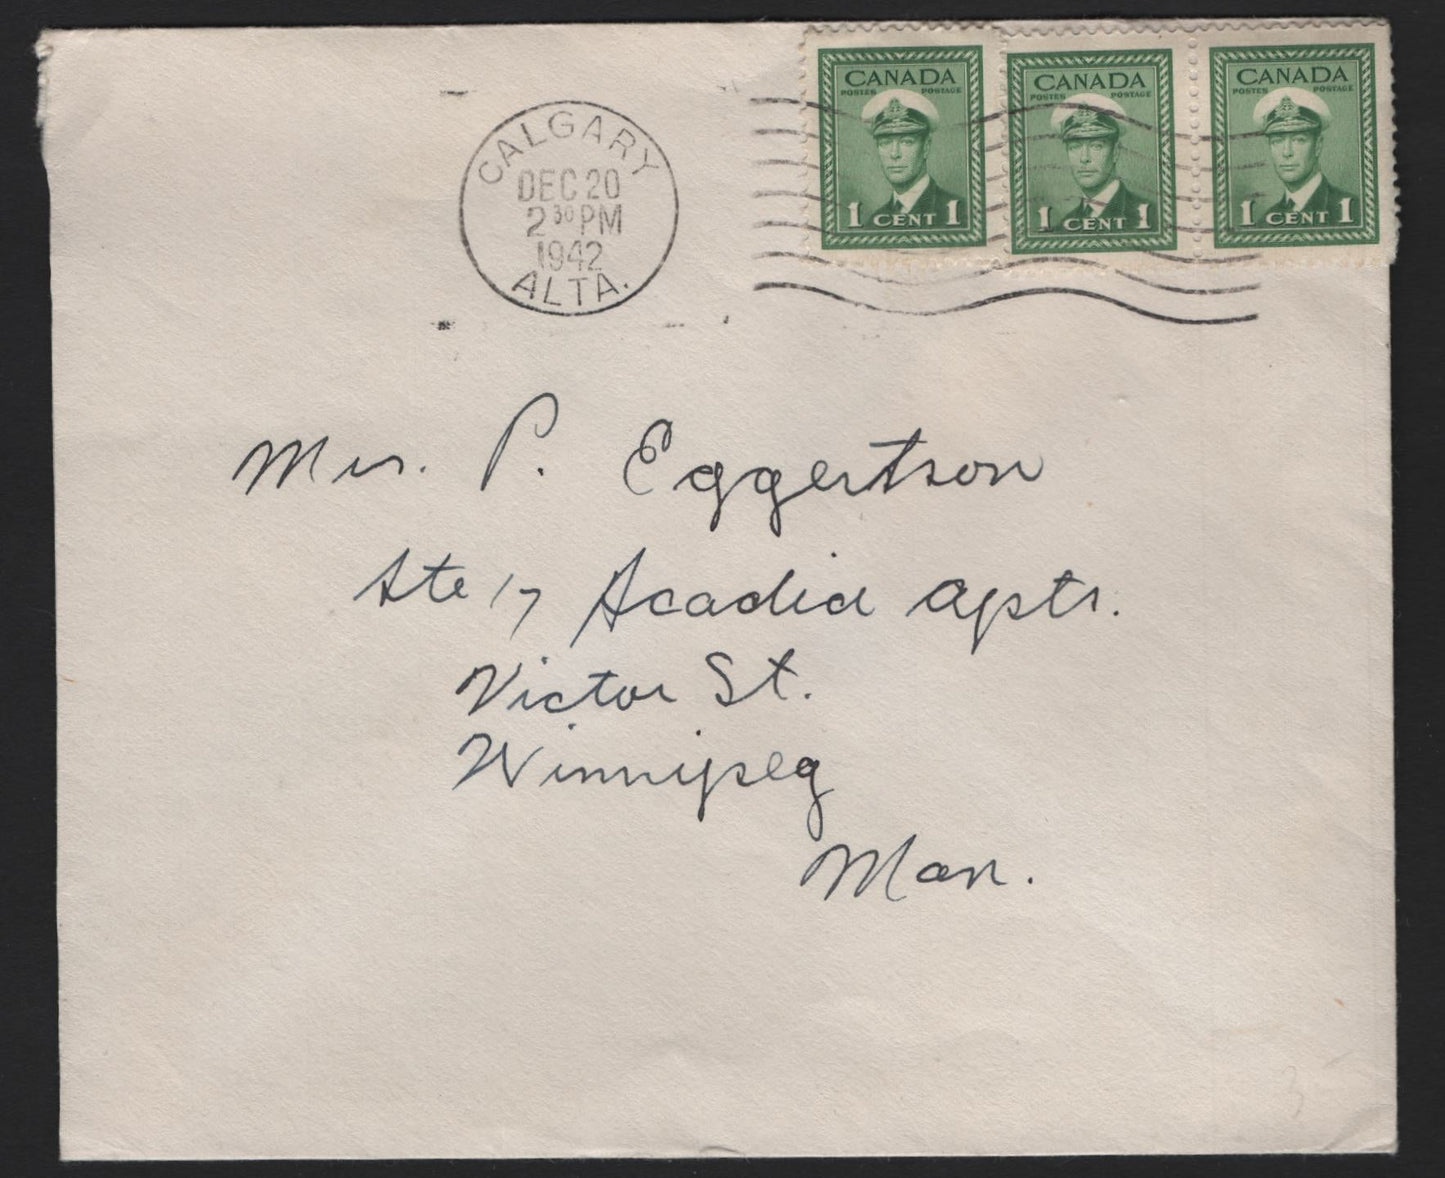 CALGARY
DEC 20
2 30 PM
1942
ALTA.
CANADA
POSTES POSTAGE
1 CENT 1
CANADA
POSTES POSTAGE
1 CENT 1
CANADA
POSTES POSTAGE
1 CENT 1
Mrs. P. Eggertson
Ste 17 Acadia Apts.
Victor St.
Winnipeg
Man.
3